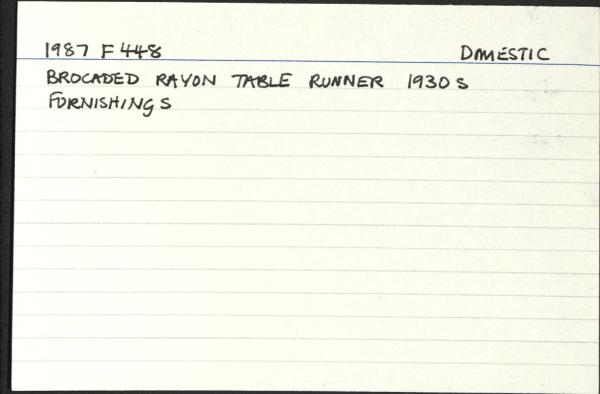 1987 F 448 DOMESTIC
BROCADED RAYON TABLE RUNNER 1930s
FURNISHINGS